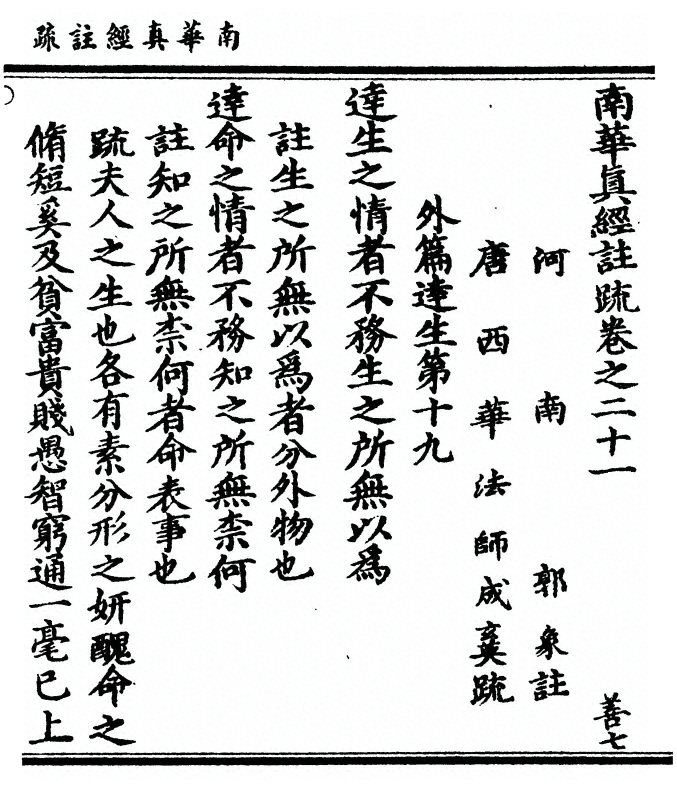 南華真經註疏
南華真經註疏卷之二十一　善七
河南　郭象註
唐西華法師成𤣥英疏
外篇達生第十九
達生之情者不務生之所無以爲
註生之所無以爲者分外物也
達命之情者不務知之所無柰何
註知之所無柰何者命表事也
疏夫人之生也各有素分形之妍醜命之
脩短奚及貧富貴賤愚智窮通一毫已上